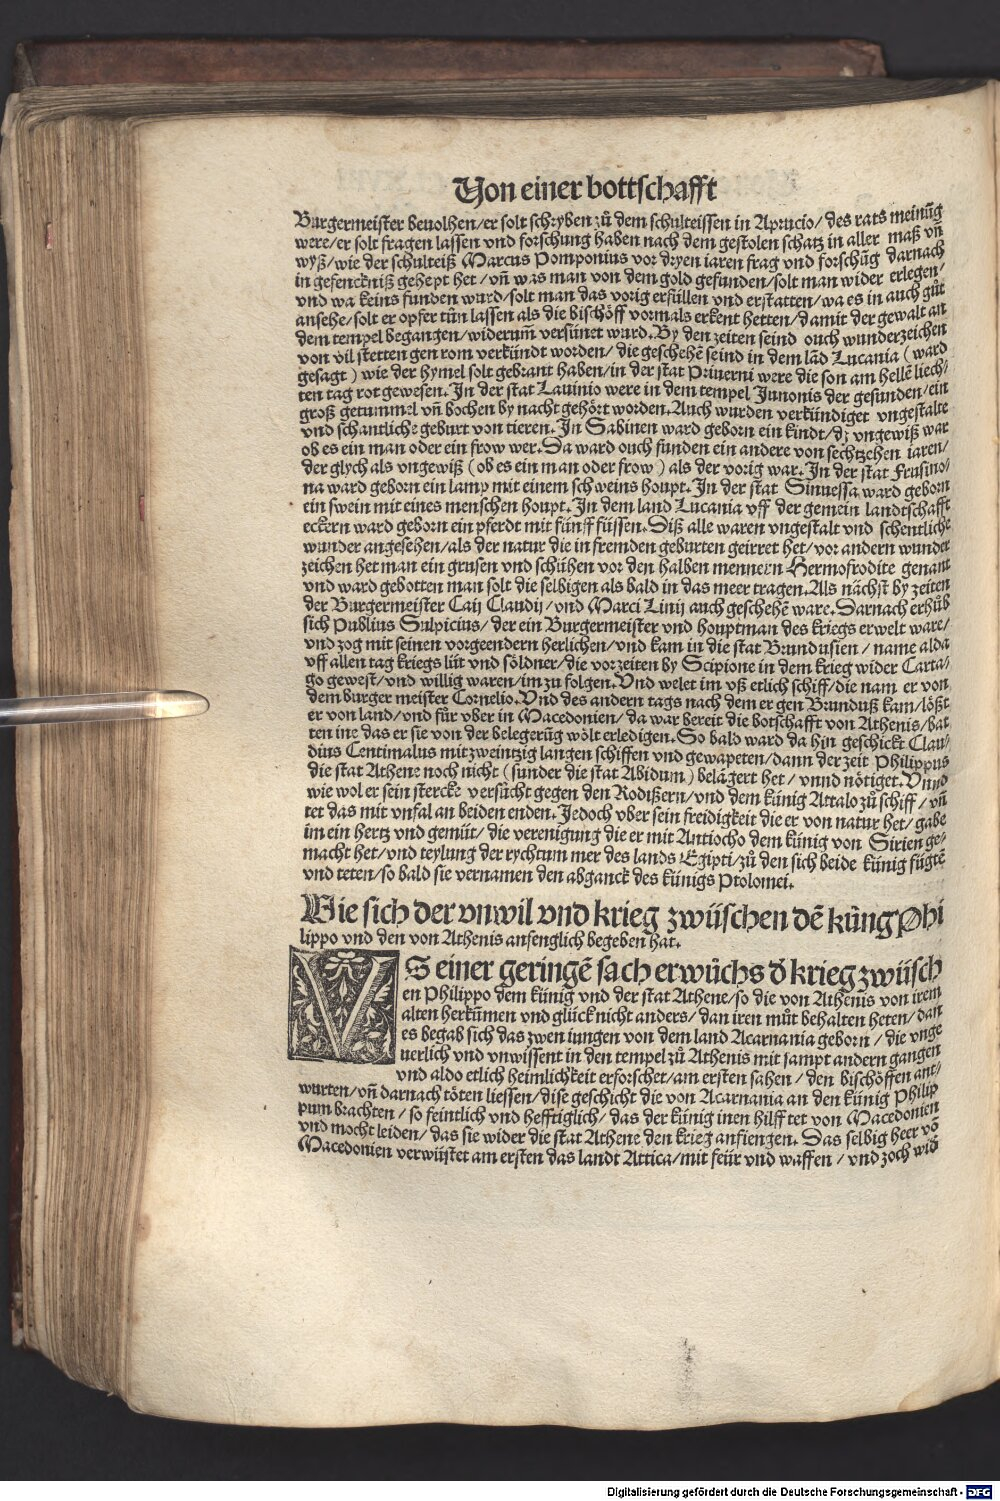 Von einer bottschafft
Burgermeister beuolhen/er solt schryben zů dem schulteissen in Aprucio/des rats meinũg
were/er solt fragen lassen vnd forschung haben nach dem gestolen schatz in aller maß vñ
wyß/wie der schulteiß Marcus Pomponius vor dryen iaren frag vnd forschũg darnach
in gefenckniß gehept het/vñ was man von dem gold gefunden/solt man wider erlegen/
vnd wa keins funden wurd/solt man das vorig erfüllen vnd erstatten/wa es in auch gůt
ansehe/solt er opfer tůn lassen als die bischöff vormals erkent hetten/damit der gewalt an
dem tempel begangen/widerum̃ versünet wurd. By den zeiten seind ouch wunderzeichen
von vil stetten gen rom verkündt worden/die geschehẽ seind in dem lãd Lucania (ward
gesagt) wie der hymel solt gebrant haben/in der stat Priuerni were die son am hellẽ liech/
ten tag rot gewesen. In der stat Lauinio were in dem tempel Junonis der gesunden/ein
groß getummel vñ bochen by nacht gehört worden. Auch wurden verkündiget vngestalte
vnd schantliche geburt von tieren. In Sabinen ward geborn ein kindt/dz vngewiß war
ob es ein man oder ein frow wer. Da ward ouch funden ein andere von sechtzehen iaren/
der glych als vngewiß (ob es ein man oder frow) als der vorig war. In der stat Frusino/
na ward geborn ein lamp mit einem schweins houpt. In der stat Sinuessa ward geborn
ein swein mit eines menschen houpt. In dem land Lucania vff der gemein landtschafft
eckern ward geborn ein pferdt mit fünff füssen. Diß alle waren vngestalt vnd schentliche
wunder angesehen/als der natur die in fremden geburten geirret het/vor andern wunder
zeichen het man ein grusen vnd schühen vor den halben mennern Hermofrodite genant
vnd ward gebotten man solt die selbigen als bald in das meer tragen. Als nächst by zeiten
der Burgermeister Caij Claudij/vnd Marci Linij auch geschehẽ ware. Darnach erhůb
sich Publius Sulpicius/der ein Burgermeister vnd houptman des kriegs erwelt ware/
vnd zog mit seinen vorgeendern herlichen/vnd kam in die stat Brundusien/name alda
vff allen tag kriegs lüt vnd söldner/die vorzeiten by Scipione in dem krieg wider Carta/
go gewest/vnd willig waren/im zu folgen. Vnd welet im vß etlich schiff/die nam er von
dem burger meister Cornelio. Vnd des andern tags nach dem er gen Brunduß kam/lößt
er von land/vnd für vber in Macedonien/da war bereit die botschafft von Athenis/bat
ten ine das er sie von der belegerũg wölt erledigen. So bald ward da hin geschickt Clau/
dius Centimalus mit zweintzig langen schiffen vnd gewapeten/dann der zeit Philippus
die stat Athene noch nicht (sunder die stat Abidum) belägert het/vnnd nötiget. Vnnd
wie wol er sein stercke versůcht gegen den Rodißern/vnd dem künig Attalo zů schiff/vñ
tet das mit vnfal an beiden enden. Jedoch vber sein freidigkeit die er von natur het/gabe
im ein hertz vnd gemüt/die verenigung die er mit Antiocho dem künig von Sirien ge/
macht het/vnd teylung der rychtum mer des lands Egipti/zů den sich beide künig fügtẽ
vnd teten/so bald sie vernamen den abganck des künigs Ptolomei.
Wie sich der vnwil vnd krieg zwüschen dẽ küng Phi
lippo vnd den von Athenis anfenglich begeben hat.
VS einer geringẽ sach erwůchs d krieg zwüsch
en Philippo dem künig vnd der stat Athene/so die von Athenis von irem
alten herkum̃en vnd glück nicht anders/dan iren můt behalten heten/dan
es begab sich das zwen iungen von dem land Acarnania geborn/die vnge
uerlich vnd vnwissent in den tempel zů Athenis mit sampt andern gangen
vnd aldo etlich heimlichkeit erforschet/am ersten sahen/den bischöffen ant/
wurten/vñ darnach töten liessen/dise geschicht die von Acarnania an den künig Philip
pum brachten/so feintlich vnd hefftiglich/das der künig inen hilff tet von Macedonien
vnd mocht leiden/das sie wider die stat Athene den krieg anfiengen. Das selbig heer võ
Macedonien verwüstet am ersten das landt Attica/mit feür vnd waffen/vnd zoch wid
Digitalisierung gefördert durch die Deutsche Forschungsgemeinschaft - DFG